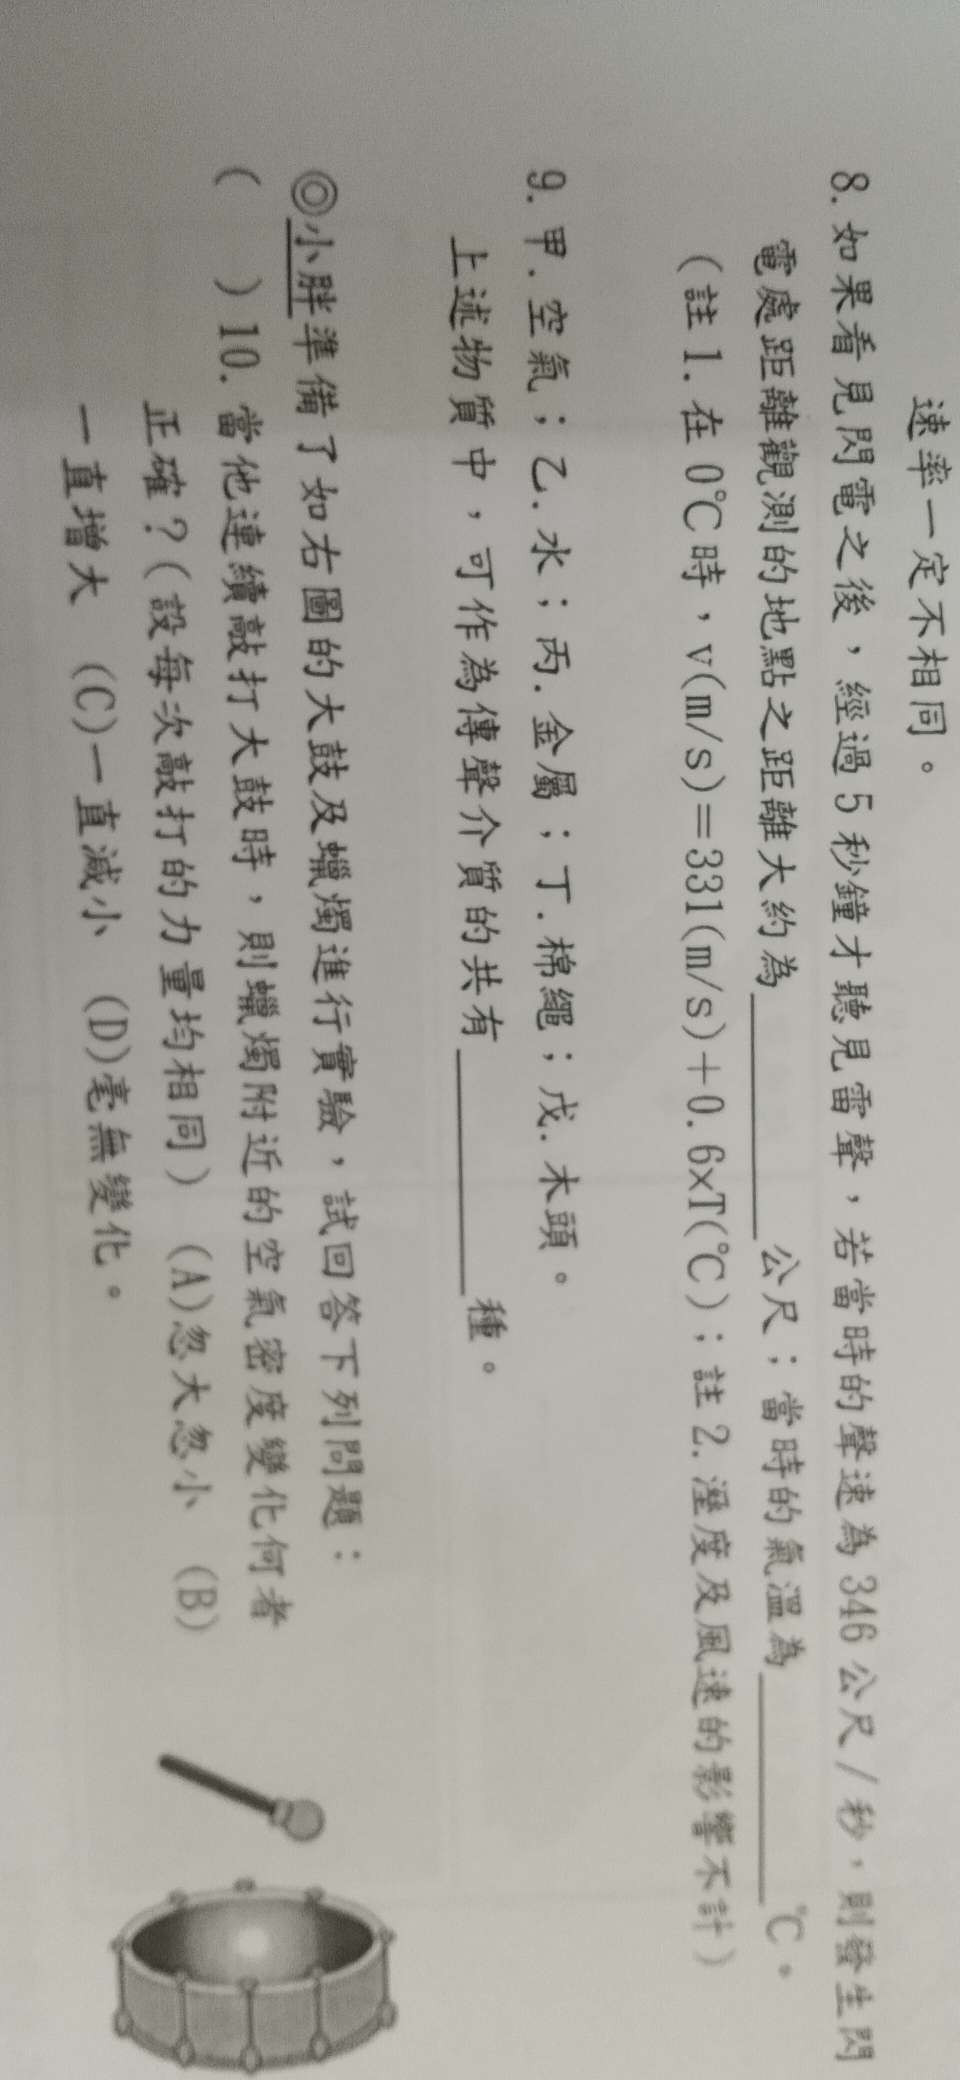 速率一定不相同。
8. 如果看見閃電之後，經過 5 秒鐘才聽見雷聲，若當時的聲速為 346 公尺/秒，則發生閃
電處距離觀測的地點之距離大約為＿＿＿＿＿公尺；當時的氣溫為＿＿＿＿＿℃。
(註 1. 在 0℃時，v(m/s)=331(m/s)+0.6×T(℃)；註 2. 溼度及風速的影響不計)
9. 甲. 空氣；乙. 水；丙. 金屬；丁. 棉繩；戊. 木頭。
上述物質中，可作為傳聲介質的共有＿＿＿＿＿種。
◎小胖準備了如右圖的大鼓及蠟燭進行實驗，試回答下列問題：
(　　)10. 當他連續敲打大鼓時，則蠟燭附近的空氣密度變化何者
正確？(設每次敲打的力量均相同) (A)忽大忽小 (B)
一直增大 (C)一直減小 (D)毫無變化。